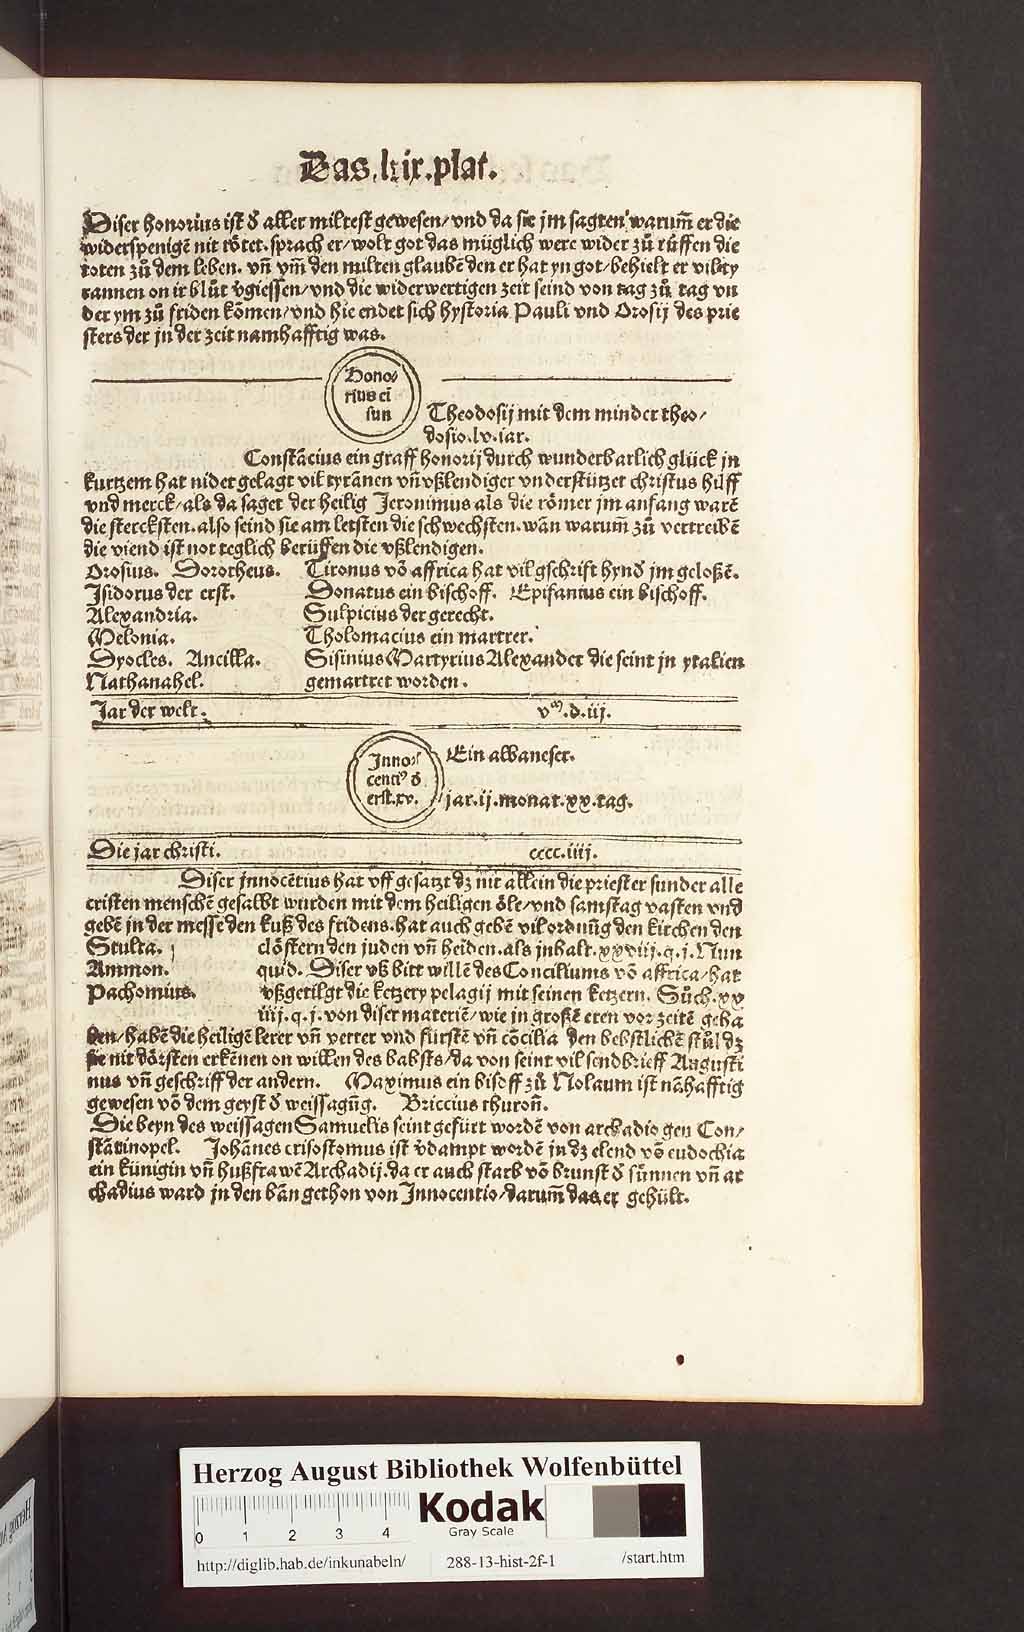 Das .lxix. plat.
Diser honorius ist d̕ aller miltest gewesen/vnd da sie jm sagten warum̄ er die
widerspenigē nit rötet.sprach er/wolt got das müglich were wider zů růffen die
toten zů dem leben. vn̄ vm̄ den milten glaubē den er hat yn got/behielt er vil ty
rannen on ir blůt v̕giessen/vnd die widerwertigen zeit seind von tag zů tag vn
der ym zů friden kömen/vnd hie endet sich hystoria Pauli vnd Orosij des prie
sters der jn der zeit namhafftig was.
Hono⸗
rius eī
sun
Theodosij mit dem minder theo/
dosio.lv.iar.
Constācius ein graff honorij durch wunderbarlich glück jn
kurtzem hat nider gelagt vil tyrānen vn̄ vßlendiger vnderstützet christus hilff
vnd merck/als da saget der heilig Jeronimus als die römer jm anfang warē
die stercksten.also seind sie am letsten die schwechsten.wān warum̄ zů vertreibē
die viend ist not teglich berüffen die vßlendigen.
Orosius. Dorotheus. Tironus vō affrica hat vil gschrift hynd̕ jm geloßē.
Isidorus der erst. Donatus ein bischoff. Epifanius ein bischoff.
Alexandria. Sulpicius der gerecht.
Melonia. Tholomacius ein martrer.
Dyocles. Ancilla. Sisinius Martyrius Alexander die seint jn ytalien
Nathanahel. gemartret worden.
Jar der welt. vᵐ.d.iij.
Inno⸗
cenciꝰ d̕
erst.xv.
Ein albaneser.
jar.ij.monat.xx.tag.
Die jar christi. cccc.iiij.
Diser jnnocētius hat vff gesatzt dz nit allein die priester sunder alle
cristen menschē gesalbt wurden mit dem heiligen öle/vnd samstag vasten vnd
gebē jn der messe den kuß des fridens.hat auch gebē vil ordnūg den kirchen den
Stulta. clöstern den juden vn̄ heiden.als jnhalt.xxviij.q.j.Nun
Ammon. quid. Diser vß bitt willē des Conciliums vō affrica/hat
Pachomius. vßgetilgt die ketzery pelagij mit seinen ketzern. Sůch.xx
iiij.q.j.von diser materiē/wie jn großē eren vor zeitē geha
ben/habē die heiligē lerer vn̄ vetter vnd fürstē vn̄ cōcilia den bebstlichē stůl dz
sie nit dörsten erkēnen on willen des babsts/da von seint vil sendbrieff Augusti
nus vn̄ geschriff der andern. Maximus ein bisoff zů Nolaum ist nāhafftig
gewesen vō dem geyst d̕ weissagūg. Briccius thuron̄.
Die beyn des weissagen Samuelis seint gefürt wordē von archadio gen Con/
stātinopel. Johānes crisostomus ist v̕dampt wordē in dz elend vō eudochia
ein künigin vn̄ hußfrawē Archadij.da er auch starb vō brunst d̕ sünnen vn̄ ar
chadius ward jn den bān gethon von Innocentio/darum̄ das er gehült.
Herzog August Bibliothek Wolfenbüttel
0 1 2 3 4
Kodak
Gray Scale
http://diglib.hab.de/inkunabeln/ 288-13-hist-2f-1 /start.htm